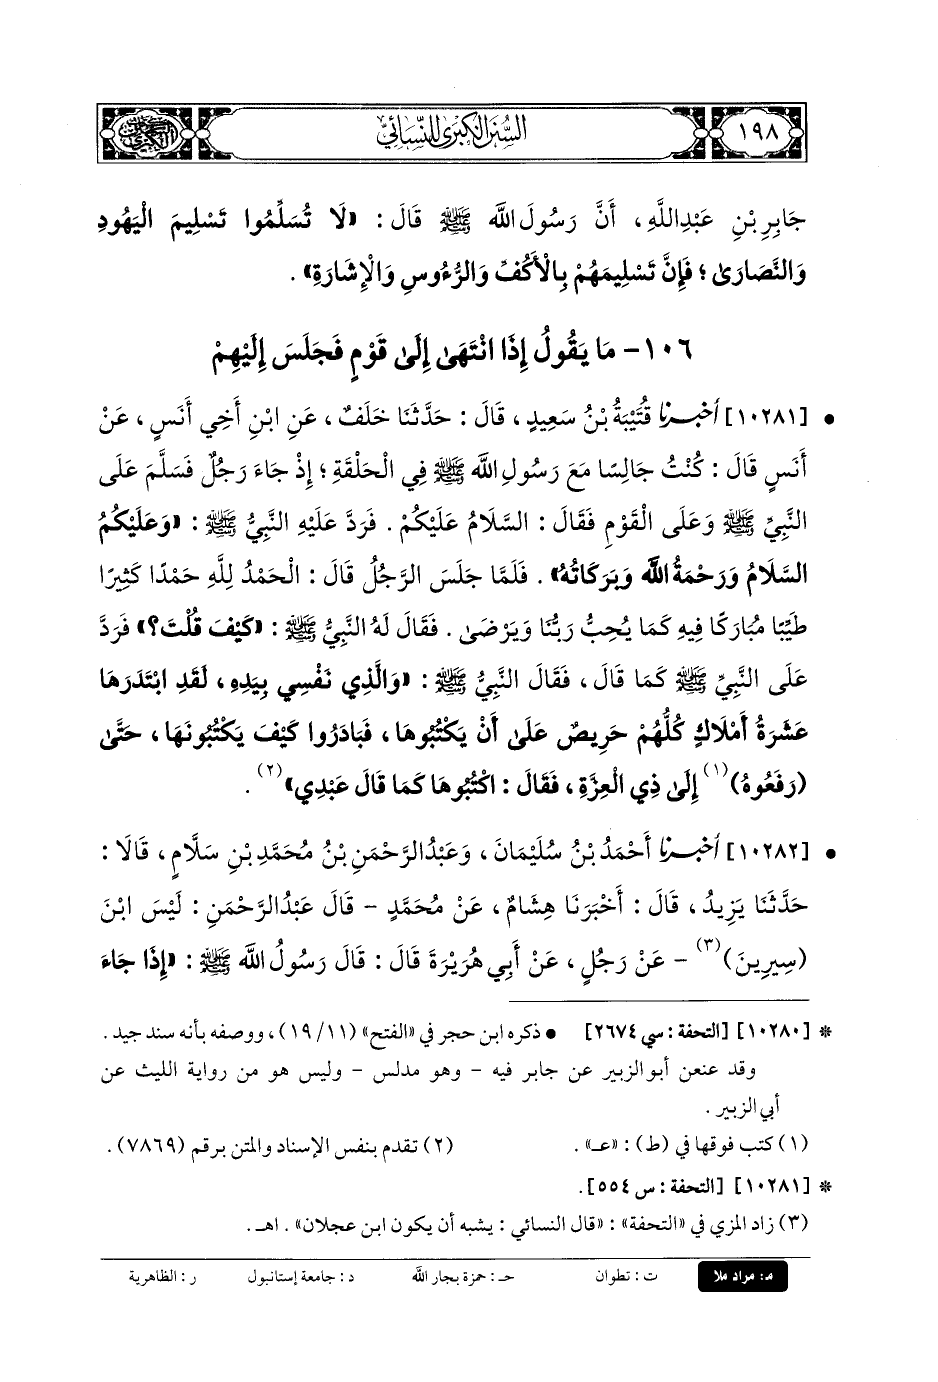 ١٩٨
السنن الكبرى للنسائي
جَابِرِ بْنِ عَبْدِاللَّهِ، أَنَّ رَسُولَ اللَّه ﷺ قَالَ : «لَا تُسَلِّمُوا تَسْلِيمَ الْيَهُودِ
وَالنَّصَارَىٰ ؛ فَإِنَّ تَسْلِيمَهُمْ بِالْأَكُفِّ وَالرُّءُوسِ وَالْإِشَارَةِ» .
١٠٦- مَا يَقُولُ إِذَا انْتَهَىٰ إِلَىٰ قَوْمٍ فَجَلَسَ إِلَيْهِمْ
• [١٠٢٨١] أَخْبَرَنَا قُتَيْبَةُ بْنُ سَعِيدٍ، قَالَ : حَدَّثَنَا خَلَفٌ، عَنِ ابْنِ أَخِي أَنَسٍ، عَنْ
أَنَسٍ قَالَ : كُنْتُ جَالِسًا مَعَ رَسُولِ اللَّه ﷺ فِي الْحَلْقَةِ ؛ إِذْ جَاءَ رَجُلٌ فَسَلَّمَ عَلَى
النَّبِيِّ ﷺ وَعَلَى الْقَوْمِ فَقَالَ : السَّلَامُ عَلَيْكُمْ . فَرَدَّ عَلَيْهِ النَّبِيُّ ﷺ : «وَعَلَيْكُمُ
السَّلَامُ وَرَحْمَةُ اللَّه وَبَرَكَاتُهُ» . فَلَمَّا جَلَسَ الرَّجُلُ قَالَ : الْحَمْدُ لِلَّهِ حَمْدًا كَثِيرًا
طَيِّبًا مُبَارَكًا فِيهِ كَمَا يُحِبُّ رَبُّنَا وَيَرْضَى . فَقَالَ لَهُ النَّبِيُّ ﷺ : «كَيْفَ قُلْتَ؟» فَرَدَّ
عَلَى النَّبِيِّ ﷺ كَمَا قَالَ، فَقَالَ النَّبِيُّ ﷺ : «وَالَّذِي نَفْسِي بِيَدِهِ، لَقَدِ ابْتَدَرَهَا
عَشَرَةُ أَمْلَاكٍ كُلُّهُمْ حَرِيصٌ عَلَىٰ أَنْ يَكْتُبُوهَا، فَبَادَرُوا كَيْفَ يَكْتُبُونَهَا، حَتَّىٰ
(رَفَعُوهُ)(١) إِلَىٰ ذِي الْعِزَّةِ، فَقَالَ : اكْتُبُوهَا كَمَا قَالَ عَبْدِي»(٢) .
• [١٠٢٨٢] أَخْبَرَنَا أَحْمَدُ بْنُ سُلَيْمَانَ، وَعَبْدُالرَّحْمَنِ بْنُ مُحَمَّدِ بْنِ سَلَّامٍ، قَالَا :
حَدَّثَنَا يَزِيدُ، قَالَ : أَخْبَرَنَا هِشَامٌ، عَنْ مُحَمَّدٍ - قَالَ عَبْدُالرَّحْمَنِ : لَيْسَ ابْنَ
(سِيرِينَ)(٣) - عَنْ رَجُلٍ، عَنْ أَبِي هُرَيْرَةَ قَالَ : قَالَ رَسُولُ اللَّه ﷺ : «إِذَا جَاءَ
* [١٠٢٨٠] [التحفة : سي ٢٦٧٤] • ذكره ابن حجر في «الفتح» (١١/ ١٩)، ووصفه بأنه سند جيد .
وقد عنعن أبو الزبير عن جابر فيه - وهو مدلس - وليس هو من رواية الليث عن
أبي الزبير .
(١) كتب فوقها في (ط) : «عـ» . (٢) تقدم بنفس الإسناد والمتن برقم (٧٨٦٩) .
* [١٠٢٨١] [التحفة : س ٥٥٤].
(٣) زاد المزي في «التحفة» : «قال النسائي : يشبه أن يكون ابن عجلان» . اهـ .
مـ: مراد ملا ت : تطوان حـ : حمزة بجار الله د : جامعة إستانبول ر : الظاهرية